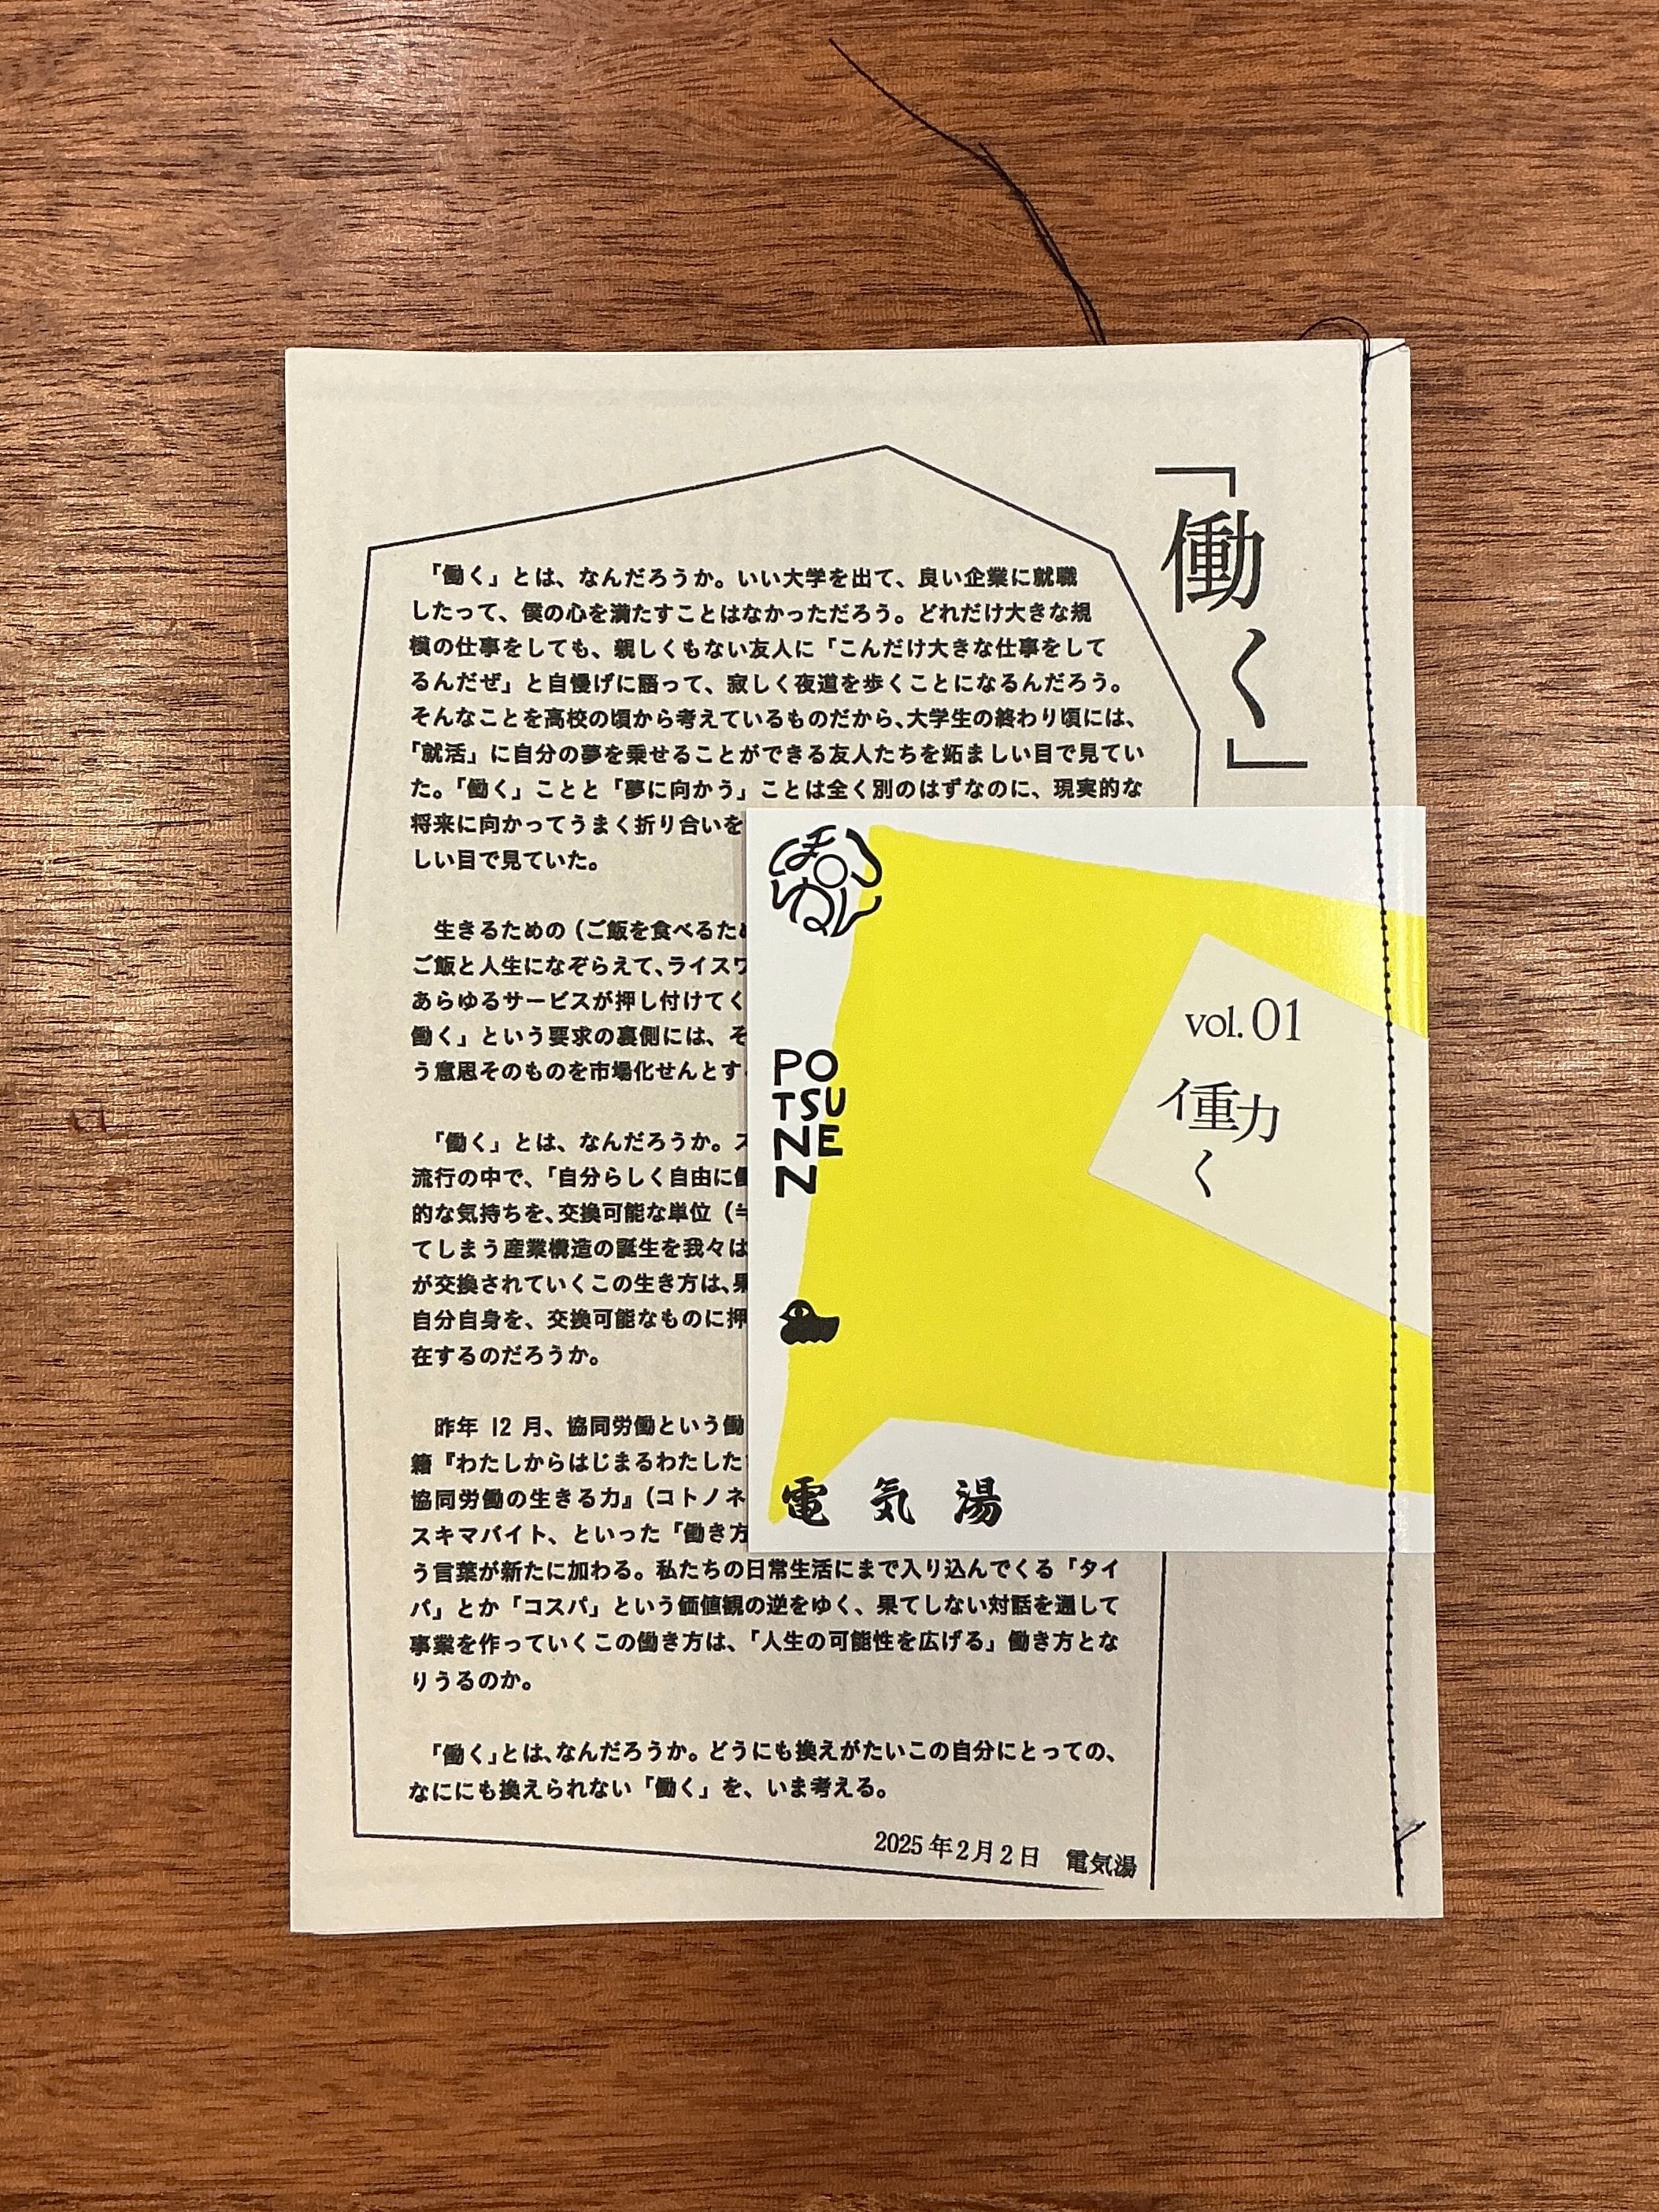 「働く」
「働く」とは、なんだろうか。いい大学を出て、良い企業に就職
したって、僕の心を満たすことはなかっただろう。どれだけ大きな規
模の仕事をしても、親しくもない友人に「こんだけ大きな仕事をして
るんだぜ」と自慢げに語って、寂しく夜道を歩くことになるんだろう。
そんなことを高校の頃から考えているものだから、大学生の終わり頃には、
「就活」に自分の夢を乗せることができる友人たちを妬ましい目で見てい
た。「働く」ことと「夢に向かう」ことは全く別のはずなのに、現実的な
将来に向かってうまく折り合いを
しい目で見ていた。
生きるための（ご飯を食べるため
ご飯と人生になぞらえて、ライスワ
あらゆるサービスが押し付けてく
働く」という要求の裏側には、そ
う意思そのものを市場化せんとす
「働く」とは、なんだろうか。ス
流行の中で、「自分らしく自由に働
的な気持ちを、交換可能な単位（
てしまう産業構造の誕生を我々は
が交換されていくこの生き方は、果
自分自身を、交換可能なものに押
在するのだろうか。
昨年 12 月、協同労働という働
籍『わたしからはじまるわたした
協同労働の生きる力』（コトノネ
スキマバイト、といった「働き方
う言葉が新たに加わる。私たちの日常生活にまで入り込んでくる「タイ
パ」とか「コスパ」という価値観の逆をゆく、果てしない対話を通して
事業を作っていくこの働き方は、「人生の可能性を広げる」働き方とな
りうるのか。
「働く」とは、なんだろうか。どうにも換えがたいこの自分にとっての、
なににも換えられない「働く」を、いま考える。
2025年2月2日 電気湯
PO
TSU
NE
N
vol.01
働
く
電気湯